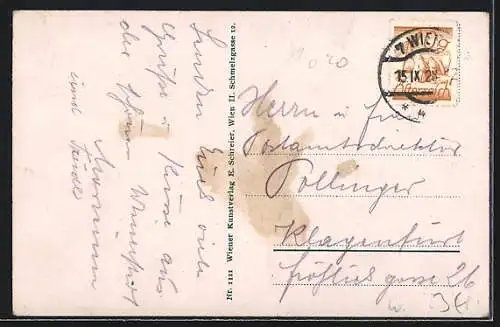 Senden Euch viele
Grüße u. Küsse aus
der schönen Wienerstadt
und
Nr. 1111 Wiener Kunstverlag E. Schreier, Wien II. Schmelzgasse 12.
7 WIEN
15.IX.2
Österreich
Herrn u. Frau
Postamtsdirektor
Pollinger
Klagenfurt
fröhlich gasse 26